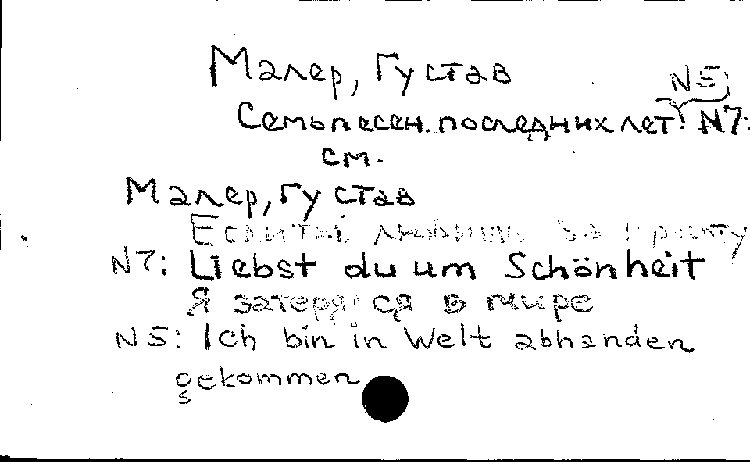 Малер, Густав
N5;
Семь песен последних лет: N7:
см.
Малер, Густав
Если ты любишь за красоту
N7: Liebst du um Schönheit
Я затерялся в мире
N5: Ich bin in Welt abhanden
gekommen